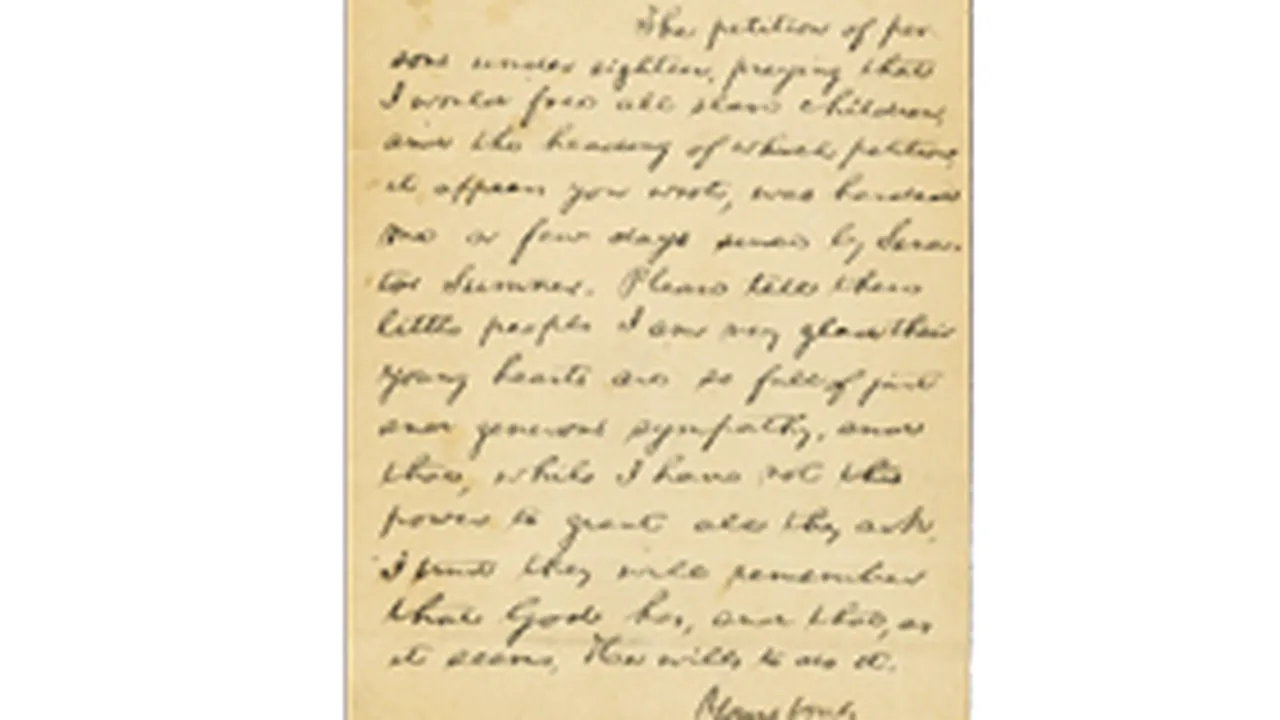 The petition of per-
sons under eighteen, praying that
I would free all slave children,
and the heading of which petition
it appears you wrote, was handed
me a few days since by Sena-
tor Sumner. Please tell these
little people I am very glad their
young hearts are so full of just
and generous sympathy, and
that, while I have not the
power to grant all they ask,
I trust they will remember
that God has, and that, as
it seems, He wills to do it.
Yours truly